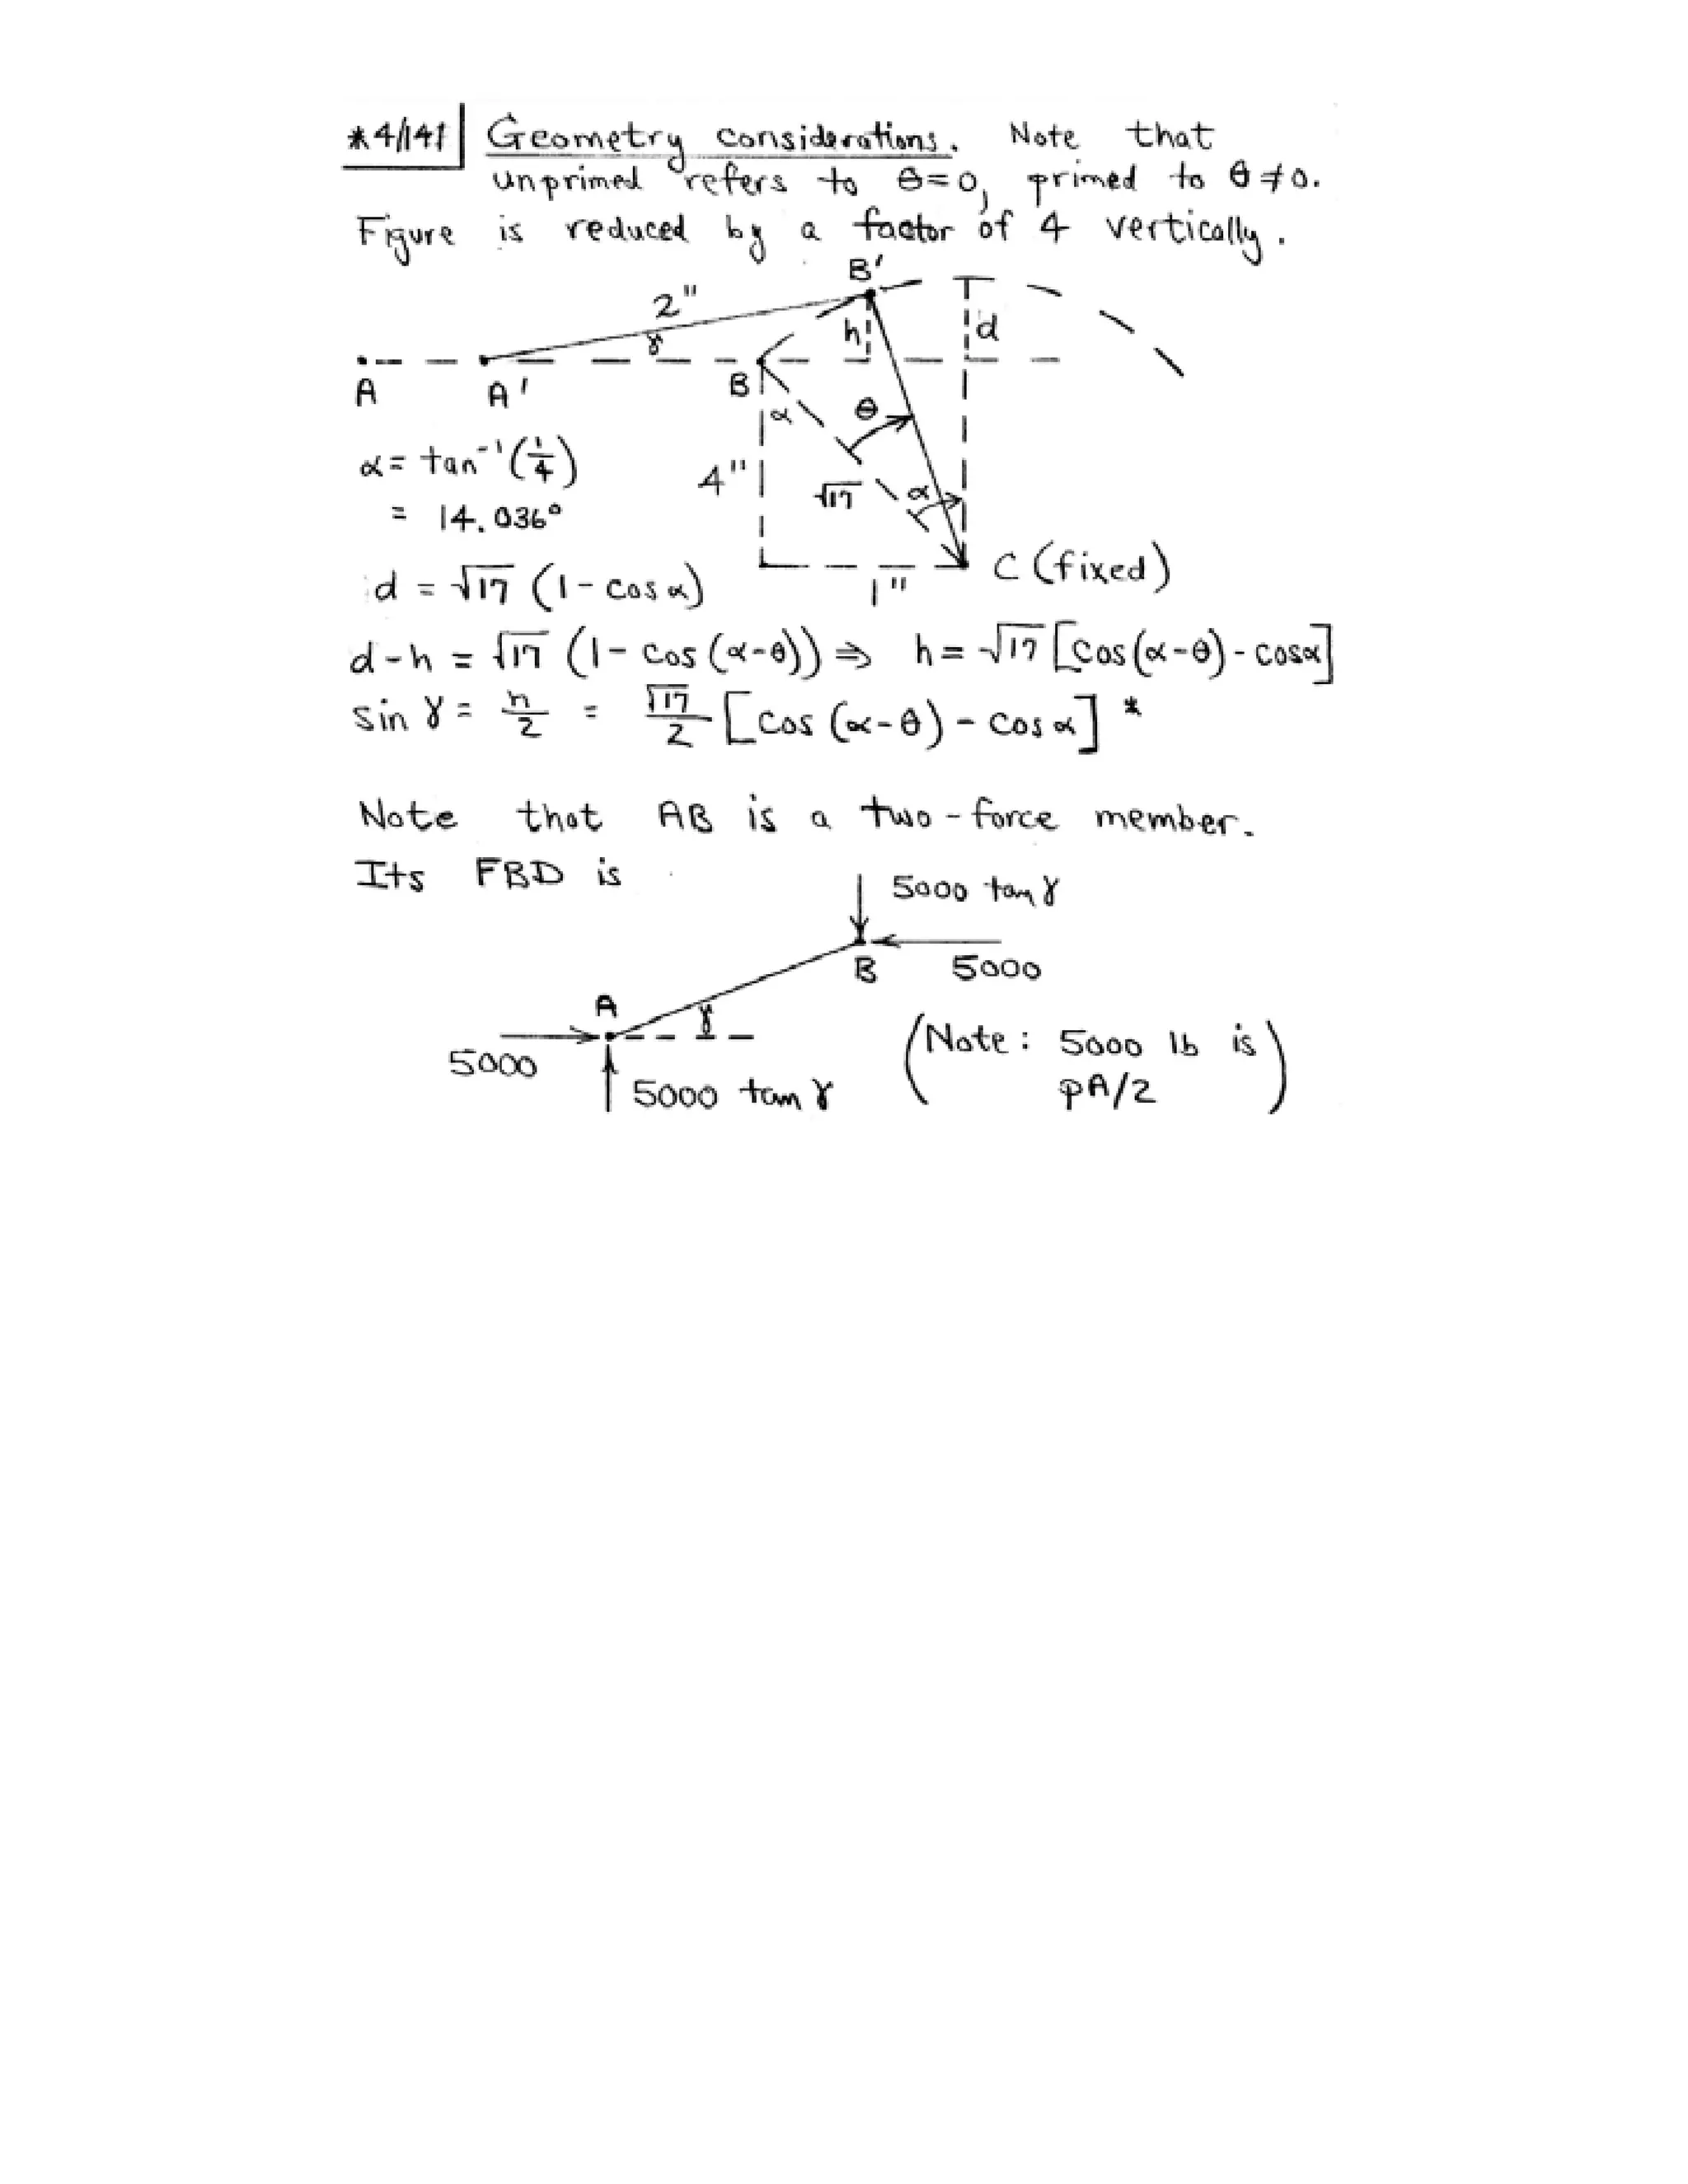 *4/141 Geometry considerations. Note that
unprimed refers to θ=0, primed to θ≠0.
Figure is reduced by a factor of 4 vertically.
B'
2"
h
d
γ
A
A'
B
α
θ
α = tan⁻¹(1/4)
4"
√17
α
= 14.036°
C (fixed)
d = √17 (1 - cos α)
1"
d-h = √17 (1 - cos (α-θ)) ⇒ h = √17 [cos(α-θ) - cosα]
sin γ = h/2 = √17/2 [cos (α-θ) - cos α] *
Note that AB is a two-force member.
Its FBD is
5000 tan γ
B
5000
A
γ
5000
5000 tan γ
(Note: 5000 lb is
pA/2)